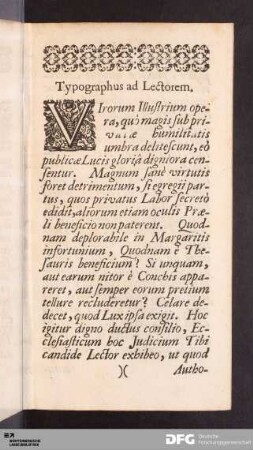 Typographus ad Lectorem.
VIrorum Illustrium ope-
ra, quò magis sub pri-
vatæ humilitatis
umbra delitescunt, eò
publicæ Lucis gloriâ digniora cen-
sentur. Magnum sanè virtutis
foret detrimentum, si egregii par-
tus, quos privatus Labor secretò
edidit, aliorum etiam oculis Præ-
li beneficio non paterent. Quod-
nam deplorabile in Margaritis
infortunium, Quodnam è The-
sauris beneficium? Si unquam,
aut earum nitor è Conchis appa-
reret, aut semper eorum pretium
tellure recluderetur? Celare de-
decet, quod Lux ipsa exigit. Hoc
igitur digno ductus consilio, Ec-
clesiasticum hoc Judicium Tibi
candide Lector exhibeo, ut quod
)( Autho-
DFG Deutsche
Forschungsgemeinschaft